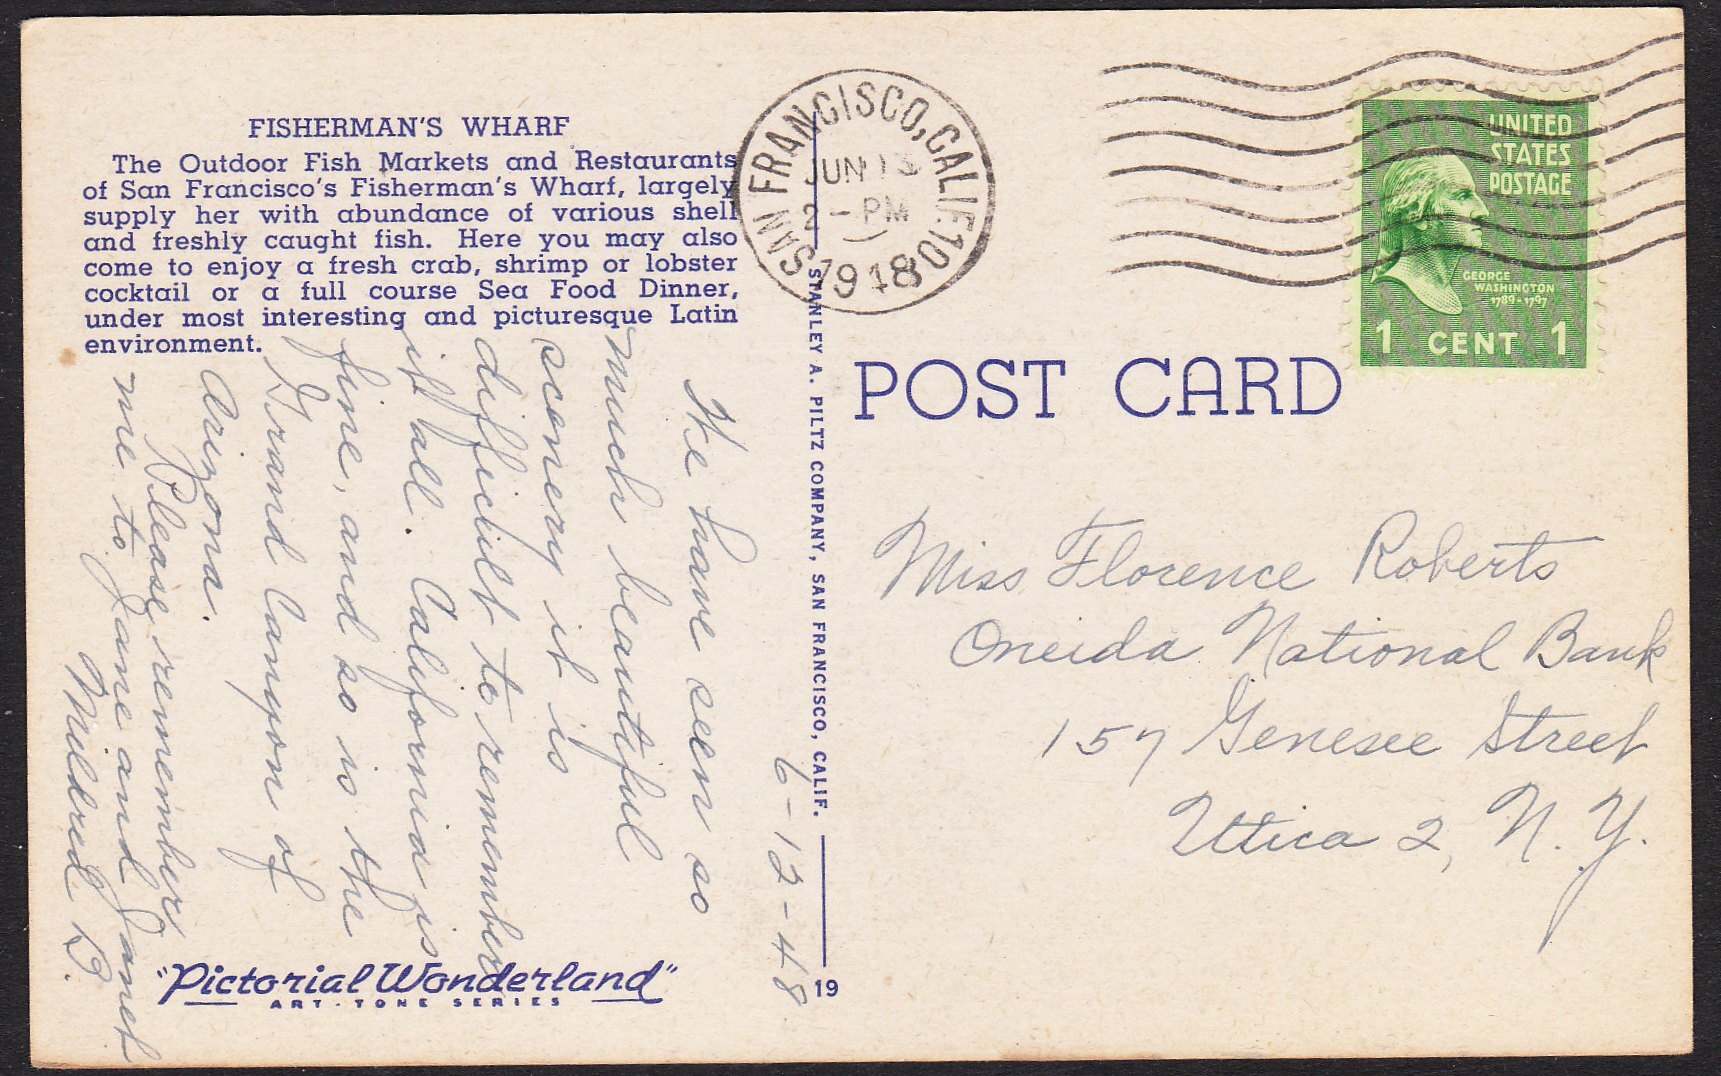 FISHERMAN'S WHARF
The Outdoor Fish Markets and Restaurants
of San Francisco's Fisherman's Wharf, largely
supply her with abundance of various shell
and freshly caught fish. Here you may also
come to enjoy a fresh crab, shrimp or lobster
cocktail or a full course Sea Food Dinner,
under most interesting and picturesque Latin
environment.
6-12-48
We have seen so
much beautiful
scenery it is
difficult to remember
it all. California is
fine, and so is the
Grand Canyon of
Arizona.
Please remember
me to Jane and Janet
Mildred B.
"Pictorial Wonderland"
ART-TONE SERIES
STANLEY A. PILTZ COMPANY, SAN FRANCISCO, CALIF.
19
SAN FRANCISCO, CALIF. 10
JUN 13
2 - PM
1948
UNITED
STATES
POSTAGE
GEORGE
WASHINGTON
1789-1797
1 CENT 1
POST CARD
Miss Florence Roberts
Oneida National Bank
157 Genesee Street
Utica 2, N. Y.